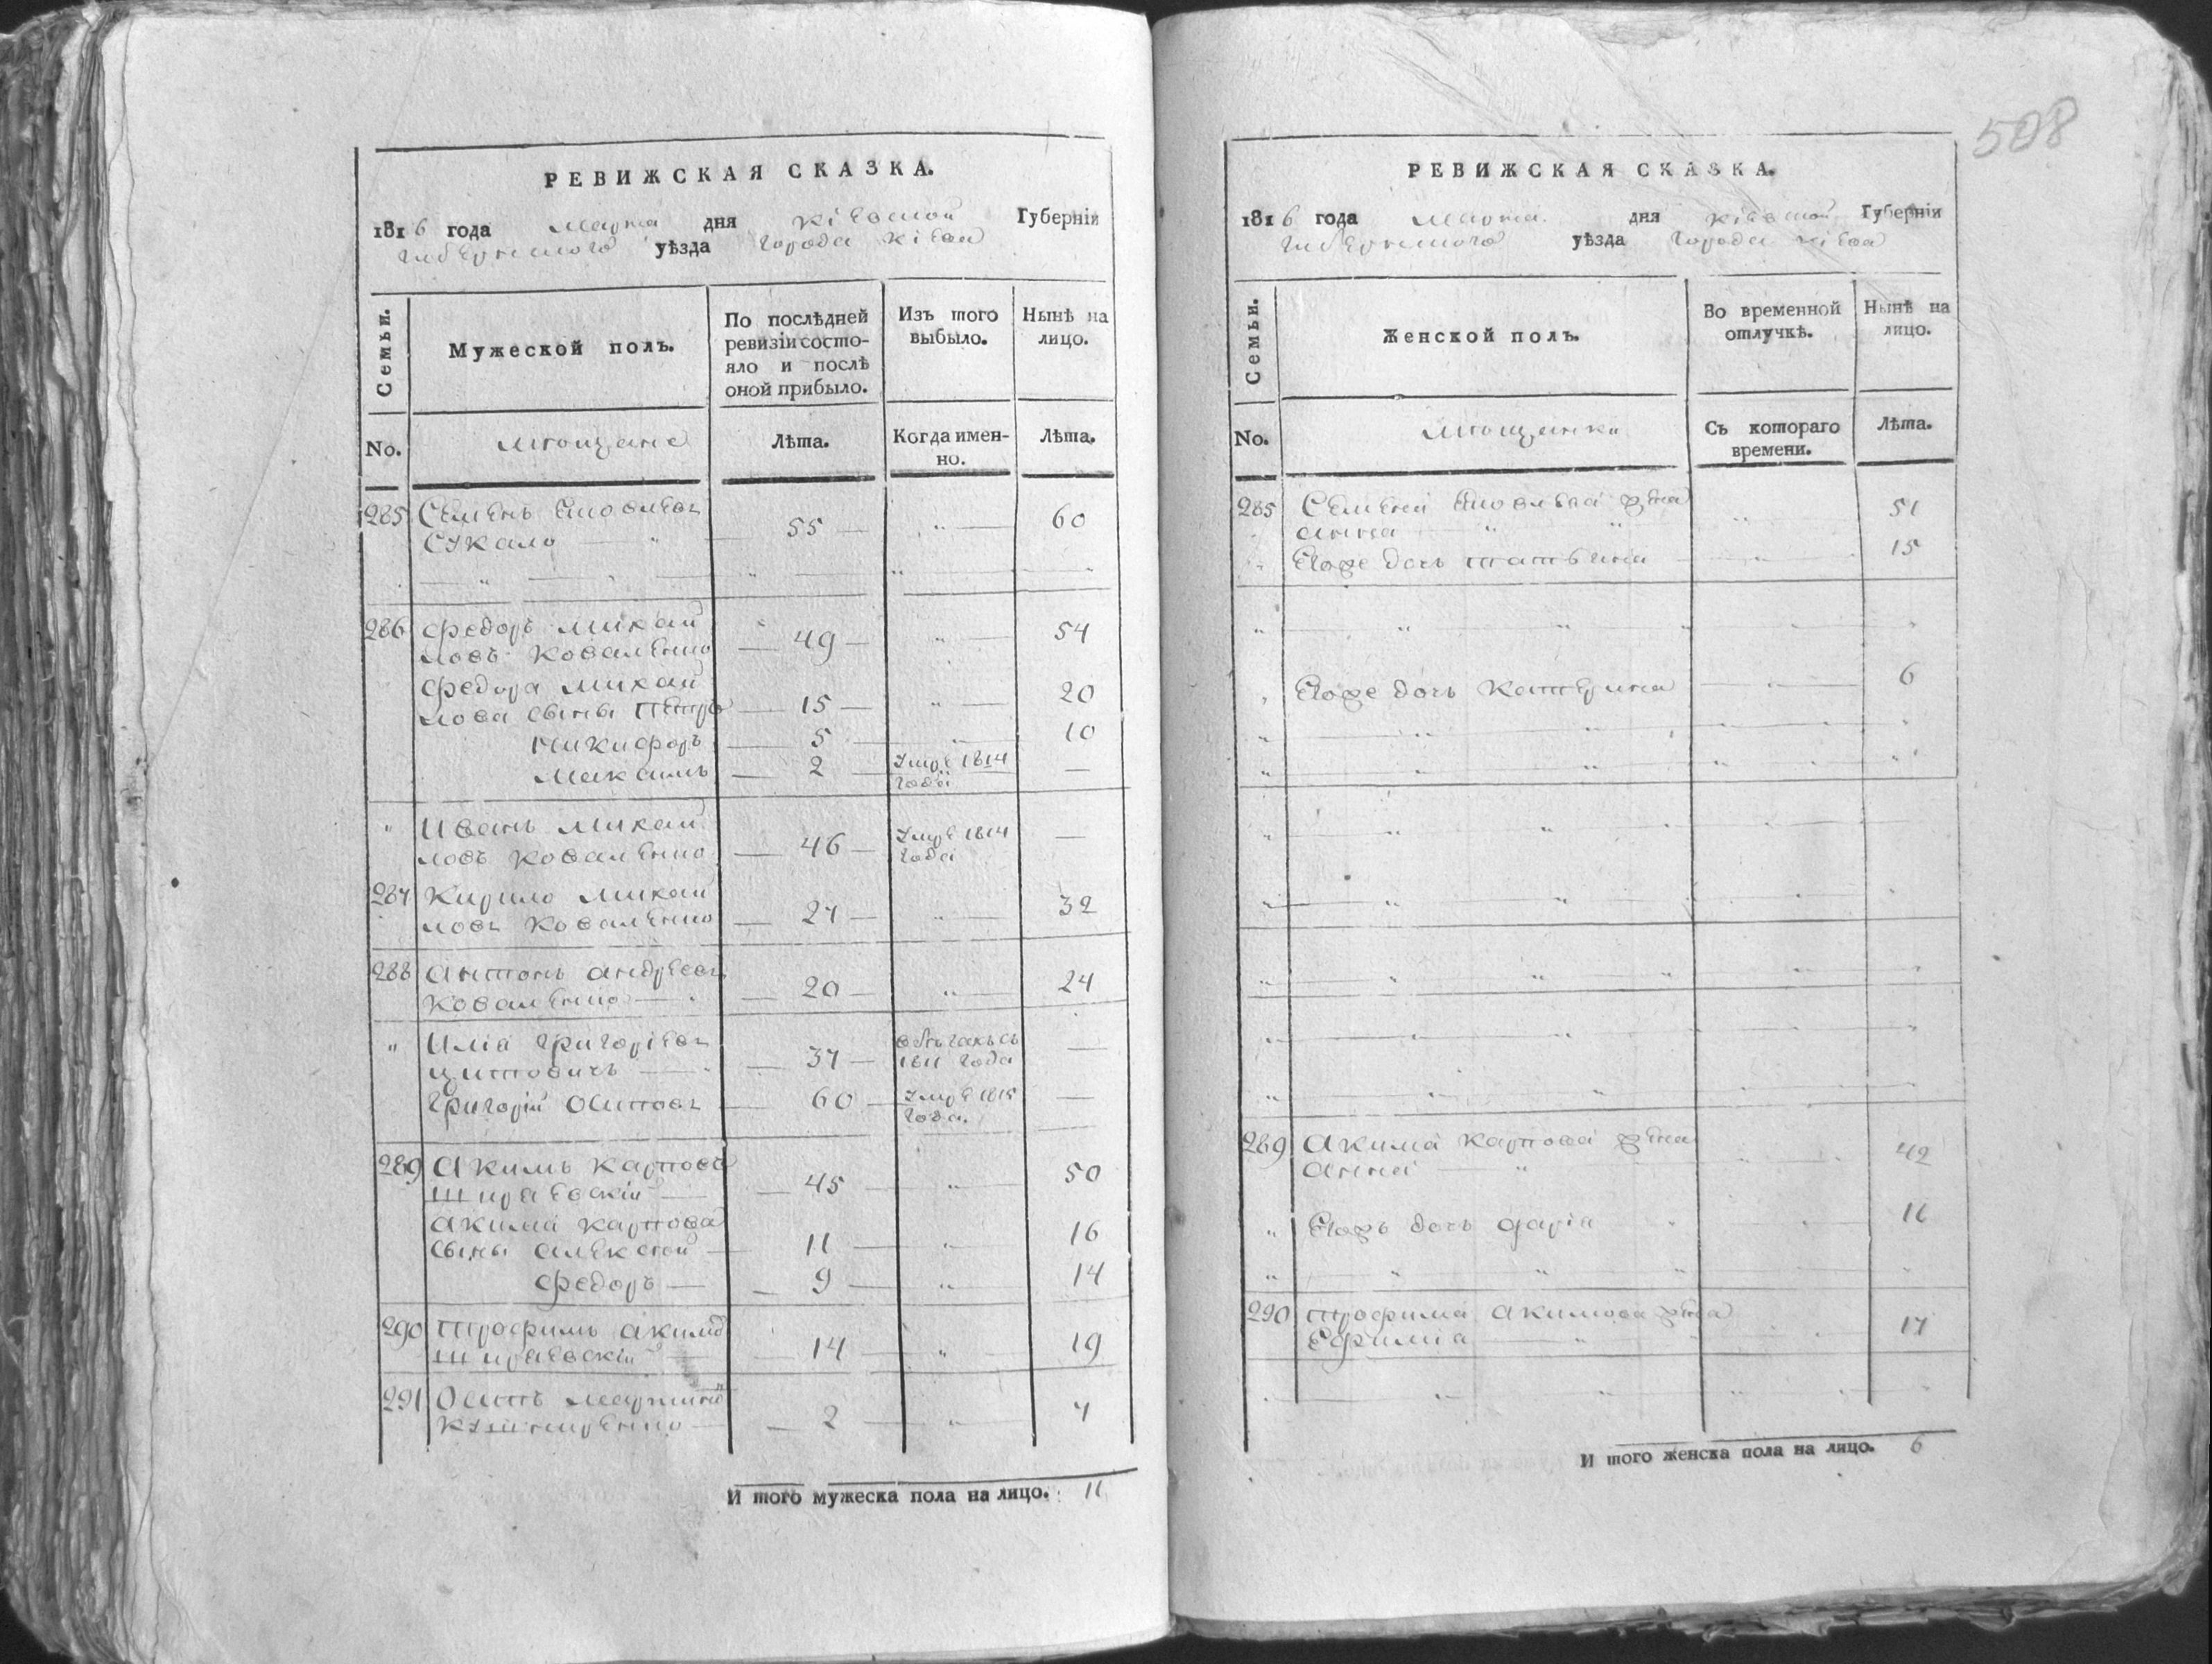 РЕВИЖСКАЯ СКАЗКА.
1816 года Марта дня Кіевской Губерніи
уѣзда города Кіева
Семьи.
Мужеской полъ.
По послѣдней ревизіи состояло и послѣ оной прибыло.
Изъ того выбыло.
Нынѣ на лицо.
No.
мѣщане
Лѣта.
Когда именно.
Лѣта.
285 Семенъ
Сукало 55 60
286 Федоръ Михай
ловъ Коваленко 49 54
Федора Михай
лова сыны Петръ 15 20
Никифоръ 5 10
Максимъ 2 Умре 1814
года
Иванъ Михай
ловъ Коваленко 46 Умре 1814
года
287 Кирило Михай
ловъ Коваленко 27 32
288 Антонъ Андреевъ
Коваленко 20 24
Иліа Григоріевъ
37 въ бѣгахъ съ
1811 года
Григорій Осиповъ 60 Умре 1815
года.
289 Акимъ Карповъ
45 50
Акима Карпова
сыны Алексѣй 11 16
Федоръ 9 14
290 Трофимъ Акимов
14 19
291 Осипъ Мартинов
2 7
И того мужеска пола на лицо. 11
508
РЕВИЖСКАЯ СКАЗКА.
1816 года Марта дня Кіевской Губерніи
уѣзда города Кіева
Семьи.
Женской полъ.
Во временной отлучкѣ.
Нынѣ на лицо.
No.
мѣщанки
Съ котораго времени.
Лѣта.
285 Семена жена
Анна 51
Егоже дочь Татьяна 15
Егоже дочь Катерина 6
289 Акима Карпова жена
Анна 42
Егожъ дочь Дарія 11
290 Трофима Акимова жена
Ефиміа 17
И того женска пола на лицо. 6